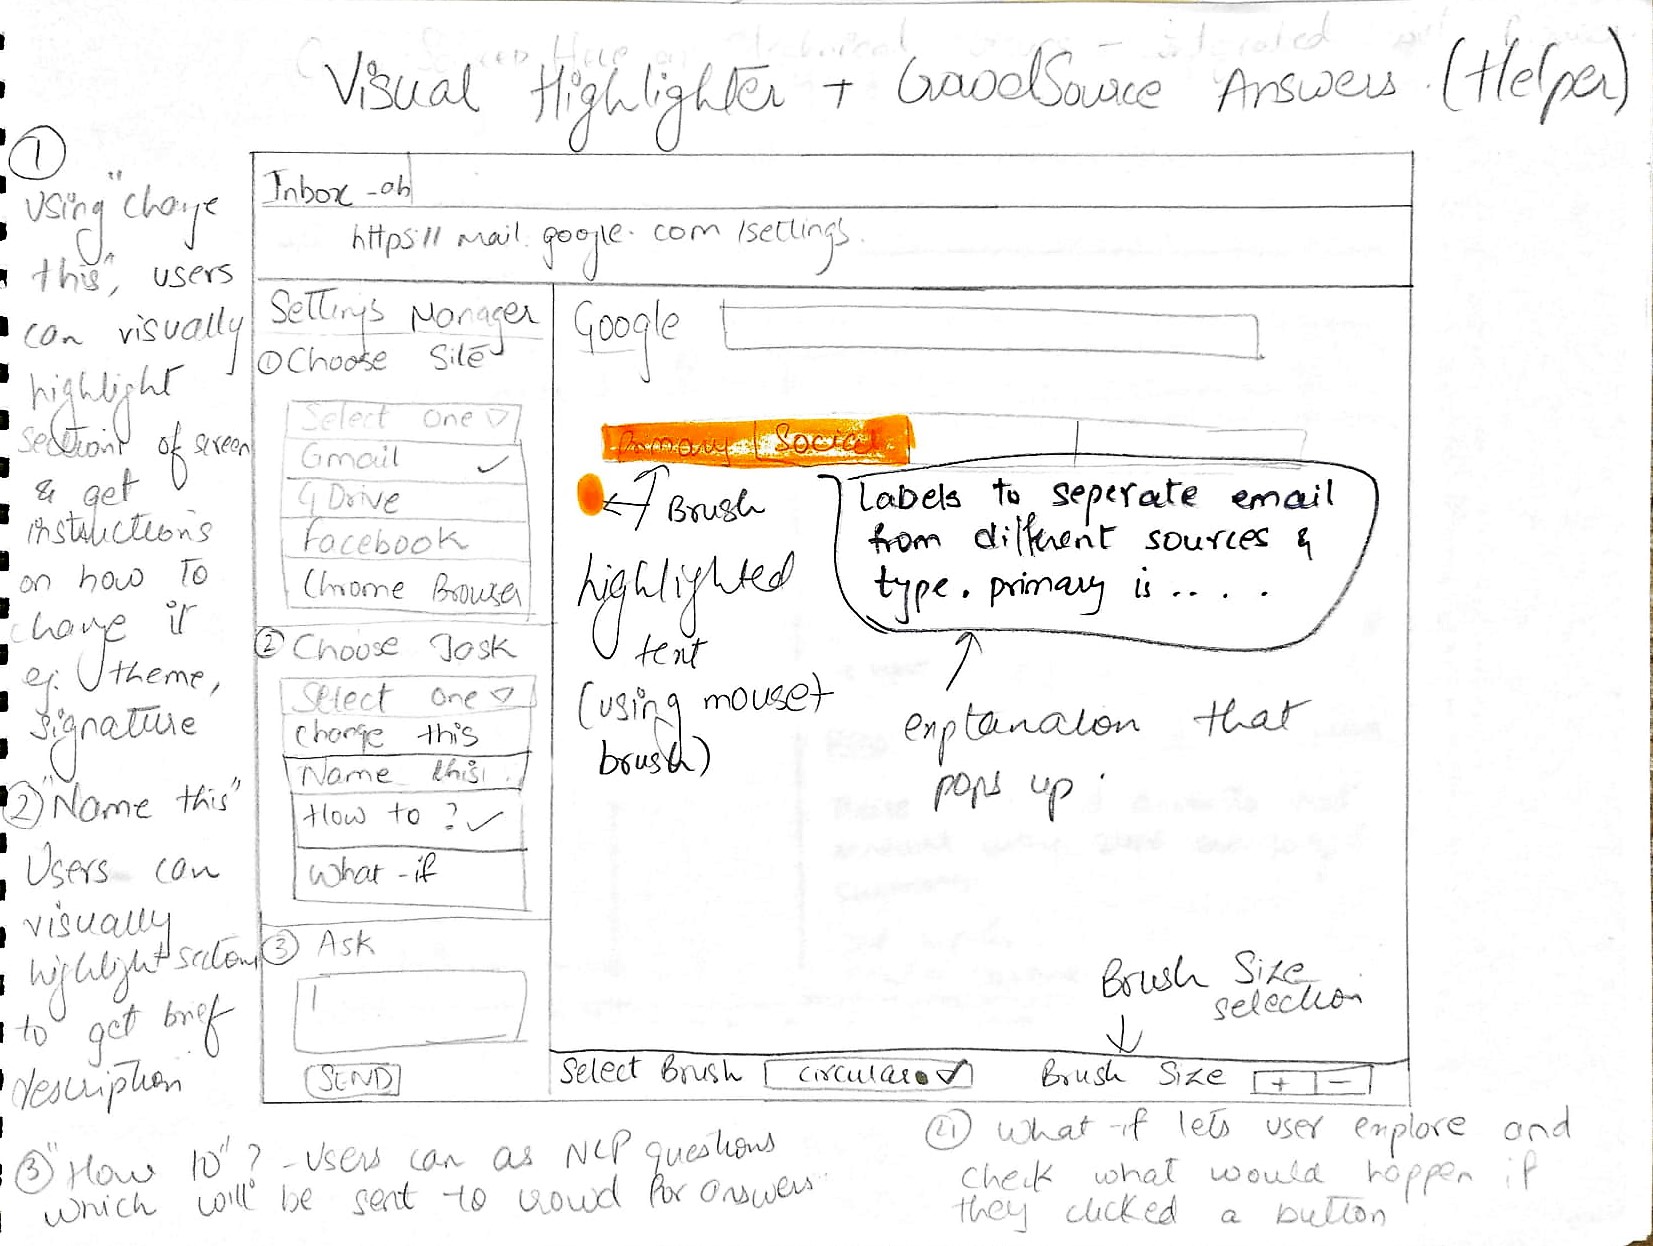 Visual Highlighter + CrowdSource Answers. (Helper)
①
Using "change
this", users
can visually
highlight
sections of screen
& get
instructions
on how to
change it
eg. theme,
signature
② "Name this"
Users can
visually
highlight
to get brief
description
Inbox - ab
https:// mail. google. com /settings.
Settings Manager
① Choose Site
Select one
Gmail ✓
G Drive
Facebook
Chrome Browser
② Choose Task
Select one
change this
Name this
How to ? ✓
What - if
③ Ask
SEND
Google
Primary | Social
Brush
highlighted
text
(using mouse +
brush)
Labels to seperate email
from different sources &
type. primary is . . . .
explanation that
pops up.
Brush Size
selection
Select Brush circular
Brush Size + -
③ "How to"? - Users can as NLP questions
which will be sent to crowd for answers
④ What - if lets user explore and
check what would happen if
they clicked a button